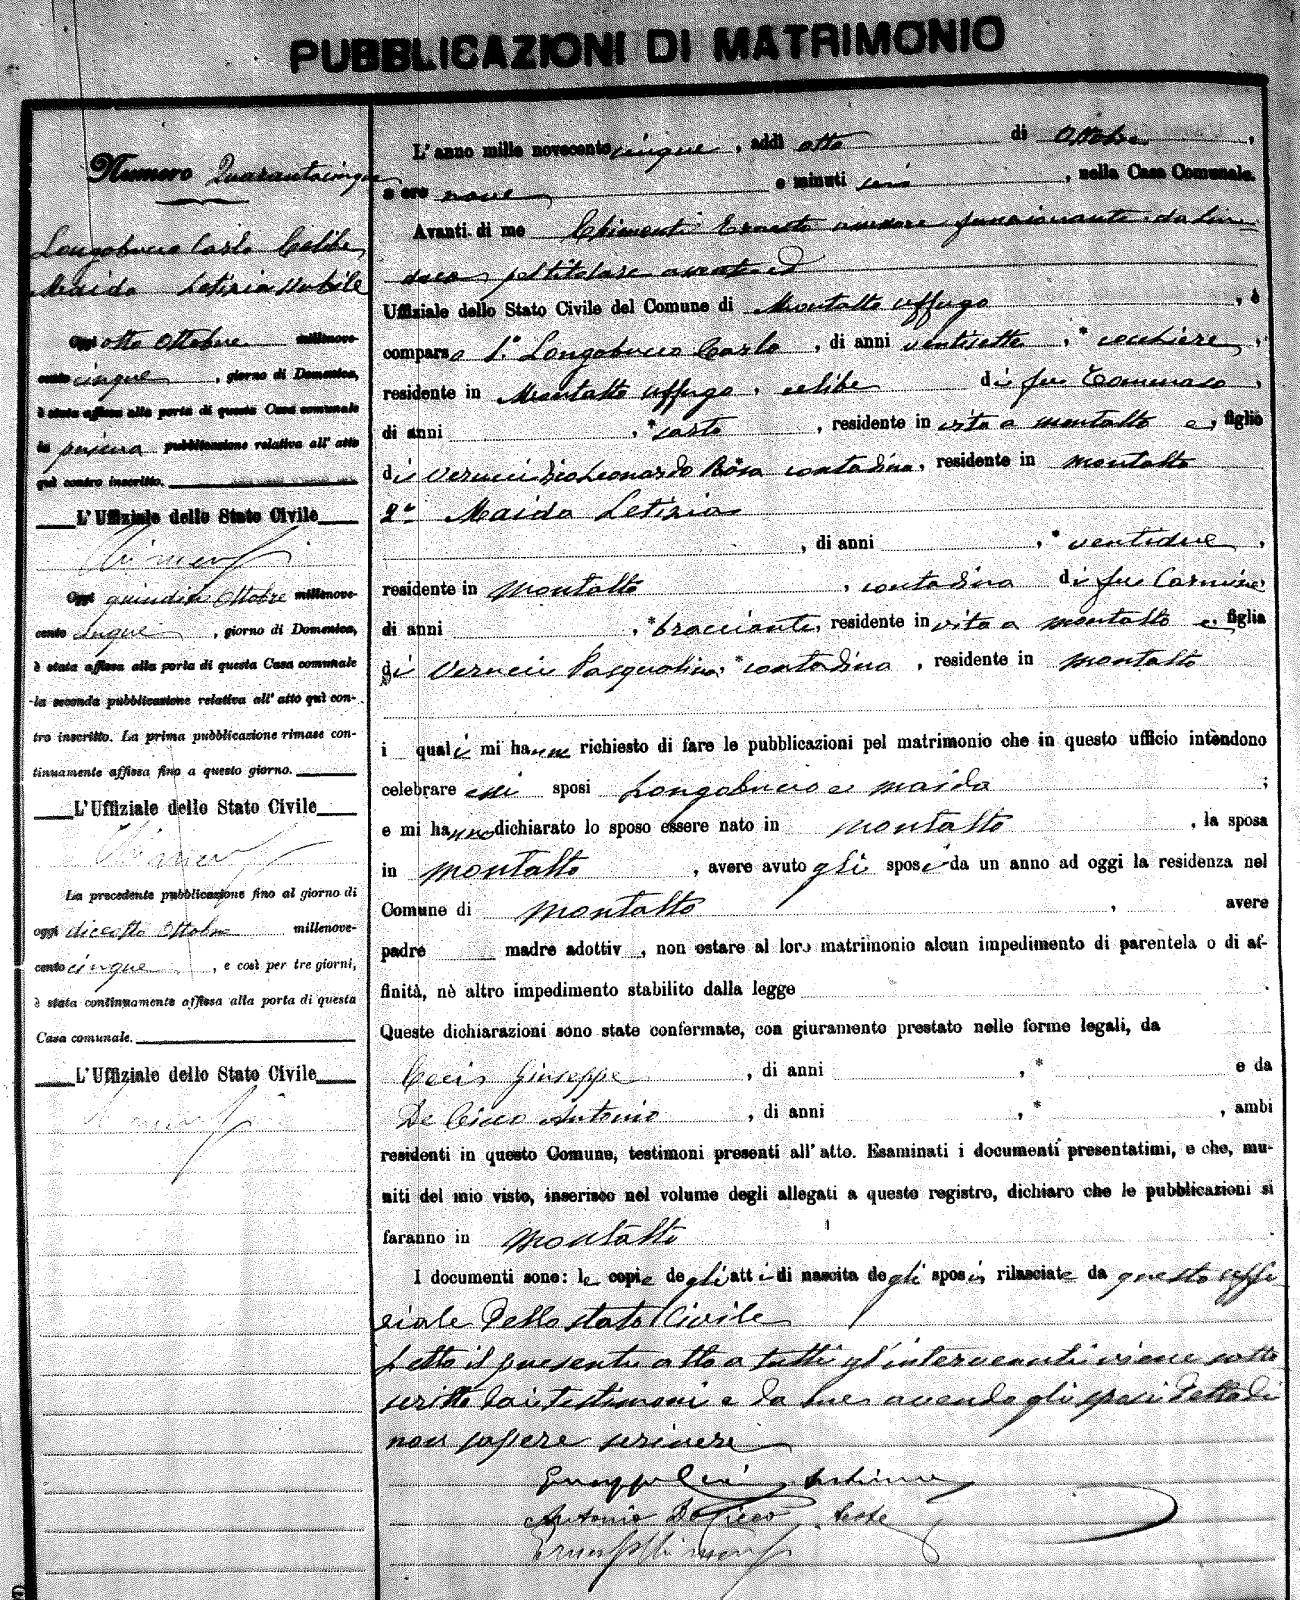 PUBBLICAZIONI DI MATRIMONIO
Numero Quarantacinque
Longobucco Carlo Celibe
Maida Letizia Nubile
Oggi otto Ottobre millenove-
cento cinque, giorno di Domenica,
è stata affissa alla porta di questa Casa comunale
la prima pubblicazione relativa all' atto
quì contro inscritto.
L'Uffiziale dello Stato Civile
Oggi quindici Ottobre millenove-
cento cinque, giorno di Domenica,
è stata affissa alla porta di questa Casa comunale
la seconda pubblicazione relativa all' atto quì con-
tro inscritto. La prima pubblicazione rimase con-
tinuamente affissa fino a questo giorno.
L'Uffiziale dello Stato Civile
La precedente pubblicazione fino al giorno di
oggi diciotto Ottobre millenove-
cento cinque, e così per tre giorni,
è stata continuamente affissa alla porta di questa
Casa comunale.
L'Uffiziale dello Stato Civile
L'anno mille novecento cinque, addì otto di Ottobre,
a ore nove e minuti sei, nella Casa Comunale.
Avanti di me Chimenti Ernesto assessore funzionante da Sin=
daco pel titolare assente ed
Uffiziale dello Stato Civile del Comune di Montalto Uffugo, è
comparso 1.° Longobucco Carlo, di anni ventisette, * cocchiere,
residente in Montalto Uffugo, celibe di fu Tommaso,
di anni , * sarto , residente in vita a Montalto e, figlio
di Leonardo Rosa contadina, residente in Montalto
2° Maida Letizia
, di anni , * ventidue,
residente in Montalto, contadina di fu Carmine
di anni , * bracciante, residente in vita a Montalto e, figlia
di Pasqualina, * contadina, residente in Montalto
i quali mi hanno richiesto di fare le pubblicazioni pel matrimonio che in questo ufficio intendono
celebrare essi sposi Longobucco e Maida ;
e mi hanno dichiarato lo sposo essere nato in Montalto, la sposa
in Montalto, avere avuto gli sposi da un anno ad oggi la residenza nel
Comune di Montalto , avere
padre madre adottiv , non ostare al loro matrimonio alcun impedimento di parentela o di af-
finità, nè altro impedimento stabilito dalla legge .
Queste dichiarazioni sono state confermate, con giuramento prestato nelle forme legali, da
Giuseppe , di anni , * e da
De Cicco Antonio , di anni , * , ambi
residenti in questo Comune, testimoni presenti all' atto. Esaminati i documenti presentatimi, e che, mu-
niti del mio visto, inserisco nel volume degli allegati a questo registro, dichiaro che le pubblicazioni si
faranno in Montalto
I documenti sono: le copie degli atti di nascita degli sposi rilasciate da questo uffi
ciale dello stato Civile
Letto il presente atto a tutti gl'intervenuti viene sotto
scritto dai testimoni e da me avendo gli sposi detto di
non sapere scrivere
Antonio De Cicco teste